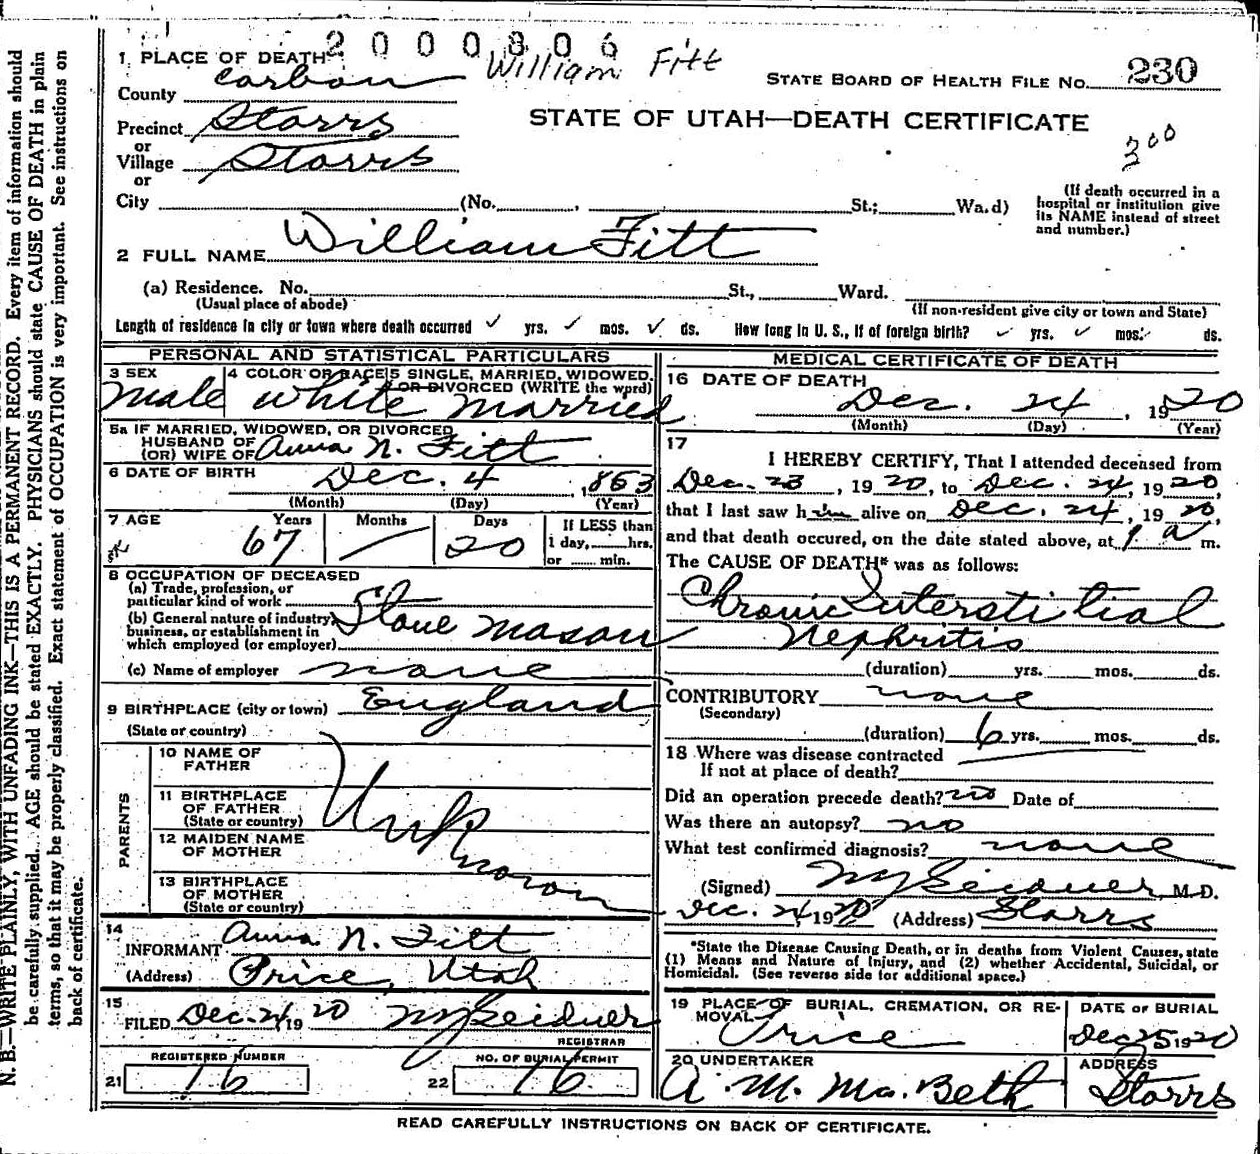 2000806
1 PLACE OF DEATH William Fitt STATE BOARD OF HEALTH FILE No. 230
County Carbon
STATE OF UTAH—DEATH CERTIFICATE
Precinct Storrs
or
Village Storrs
3 00
or
City (No. , St.; Wa.d)
(If death occurred in a hospital or institution give its NAME instead of street and number.)
2 FULL NAME William Fitt
(a) Residence. No. St., Ward.
(Usual place of abode) (If non-resident give city or town and State)
Length of residence in city or town where death occurred ✓ yrs. ✓ mos. ✓ ds. How long in U. S., if of foreign birth? ✓ yrs. ✓ mos. ds.
PERSONAL AND STATISTICAL PARTICULARS
3 SEX 4 COLOR OR RACE 5 SINGLE, MARRIED, WIDOWED,
OR DIVORCED (WRITE the word)
Male White Married
5a IF MARRIED, WIDOWED, OR DIVORCED
HUSBAND OF
(OR) WIFE OF Anna N. Fitt
6 DATE OF BIRTH Dec. 4 , 1853
(Month) (Day) (Year)
7 AGE Years Months Days If LESS than
67 / 20 1 day, hrs.
or min.
8 OCCUPATION OF DECEASED
(a) Trade, profession, or
particular kind of work
(b) General nature of industry,
business, or establishment in
which employed (or employer) Stone Mason
(c) Name of employer none
9 BIRTHPLACE (city or town) England
(State or country)
PARENTS
10 NAME OF
FATHER
11 BIRTHPLACE
OF FATHER
(State or country)
Unknown
12 MAIDEN NAME
OF MOTHER
13 BIRTHPLACE
OF MOTHER
(State or country)
14
INFORMANT Anna N. Fitt
(Address) Price, Utah
15
FILED Dec. 24 1920
REGISTRAR
REGISTERED NUMBER NO. OF BURIAL PERMIT
21 16 22 16
MEDICAL CERTIFICATE OF DEATH
16 DATE OF DEATH
Dec. 24 , 1920
(Month) (Day) (Year)
17
I HEREBY CERTIFY, That I attended deceased from
Dec. 23 , 1920, to Dec. 24, 1920,
that I last saw him alive on Dec. 24, 1920,
and that death occured, on the date stated above, at 1 a m.
The CAUSE OF DEATH* was as follows:
Chronic Interstitial
Nephritis
(duration) yrs. mos. ds.
CONTRIBUTORY none
(Secondary)
(duration) 6 yrs. mos. ds.
18 Where was disease contracted
If not at place of death?
Did an operation precede death? no Date of
Was there an autopsy? no
What test confirmed diagnosis? none
(Signed) M.D.
Dec. 24, 1920 (Address) Storrs
*State the Disease Causing Death, or in deaths from Violent Causes, state
(1) Means and Nature of Injury, and (2) whether Accidental, Suicidal, or
Homicidal. (See reverse side for additional space.)
19 PLACE OF BURIAL, CREMATION, OR RE-
MOVAL Price
DATE OF BURIAL
Dec 25 1920
20 UNDERTAKER
A. M. McBeth
ADDRESS
Storrs
READ CAREFULLY INSTRUCTIONS ON BACK OF CERTIFICATE.
N. B.—WRITE PLAINLY, WITH UNFADING INK—THIS IS A PERMANENT RECORD. Every item of information should
be carefully supplied. AGE should be stated EXACTLY. PHYSICIANS should state CAUSE OF DEATH in plain
terms, so that it may be properly classified. Exact statement of OCCUPATION is very important. See instructions on
back of certificate.